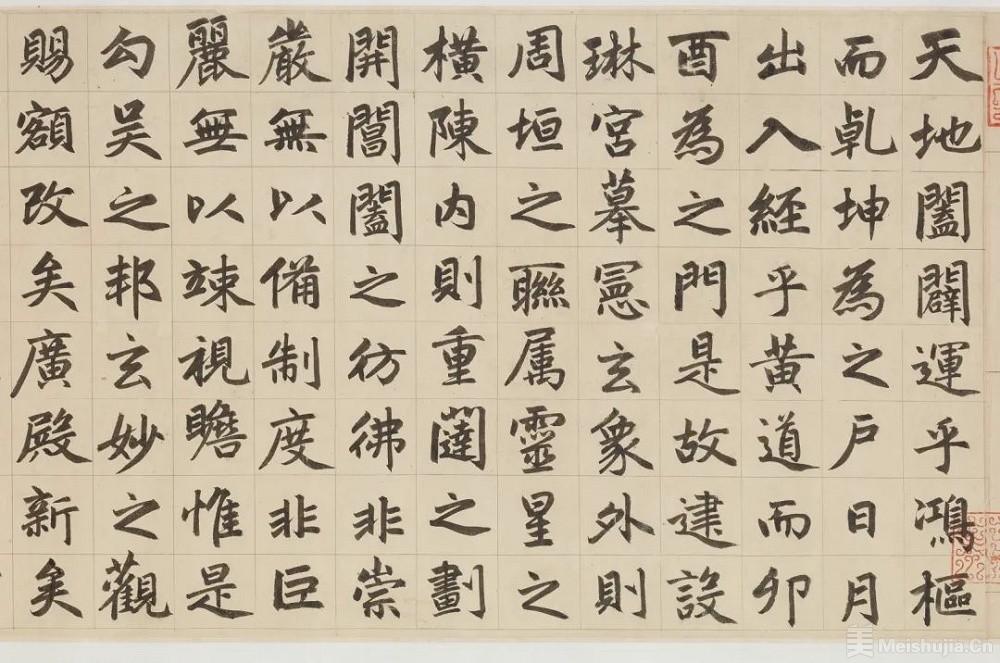 天地闔闢運乎鴻樞
而乹坤為之戶日月
出入經乎黄道而卯
酉為之門是故建設
琳宮摹憲玄象外則
周垣之聯属靈星之
橫陳内則重闥之劃
開閶闔之彷彿非崇
嚴無以備制度非巨
麗無以竦視瞻惟是
勾吴之邦玄妙之觀
賜額改矣廣殿新矣
美 Meishujia.Cn